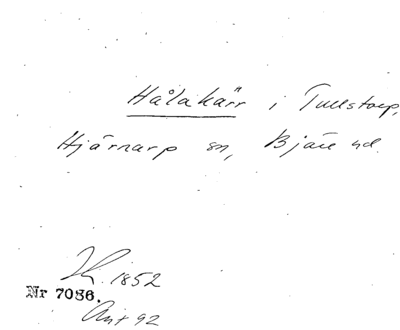 Hålakärr i Tullstorp,
Hjärnarp sn, Bjäre hd.
1852
Nr 7086.
Ant 92